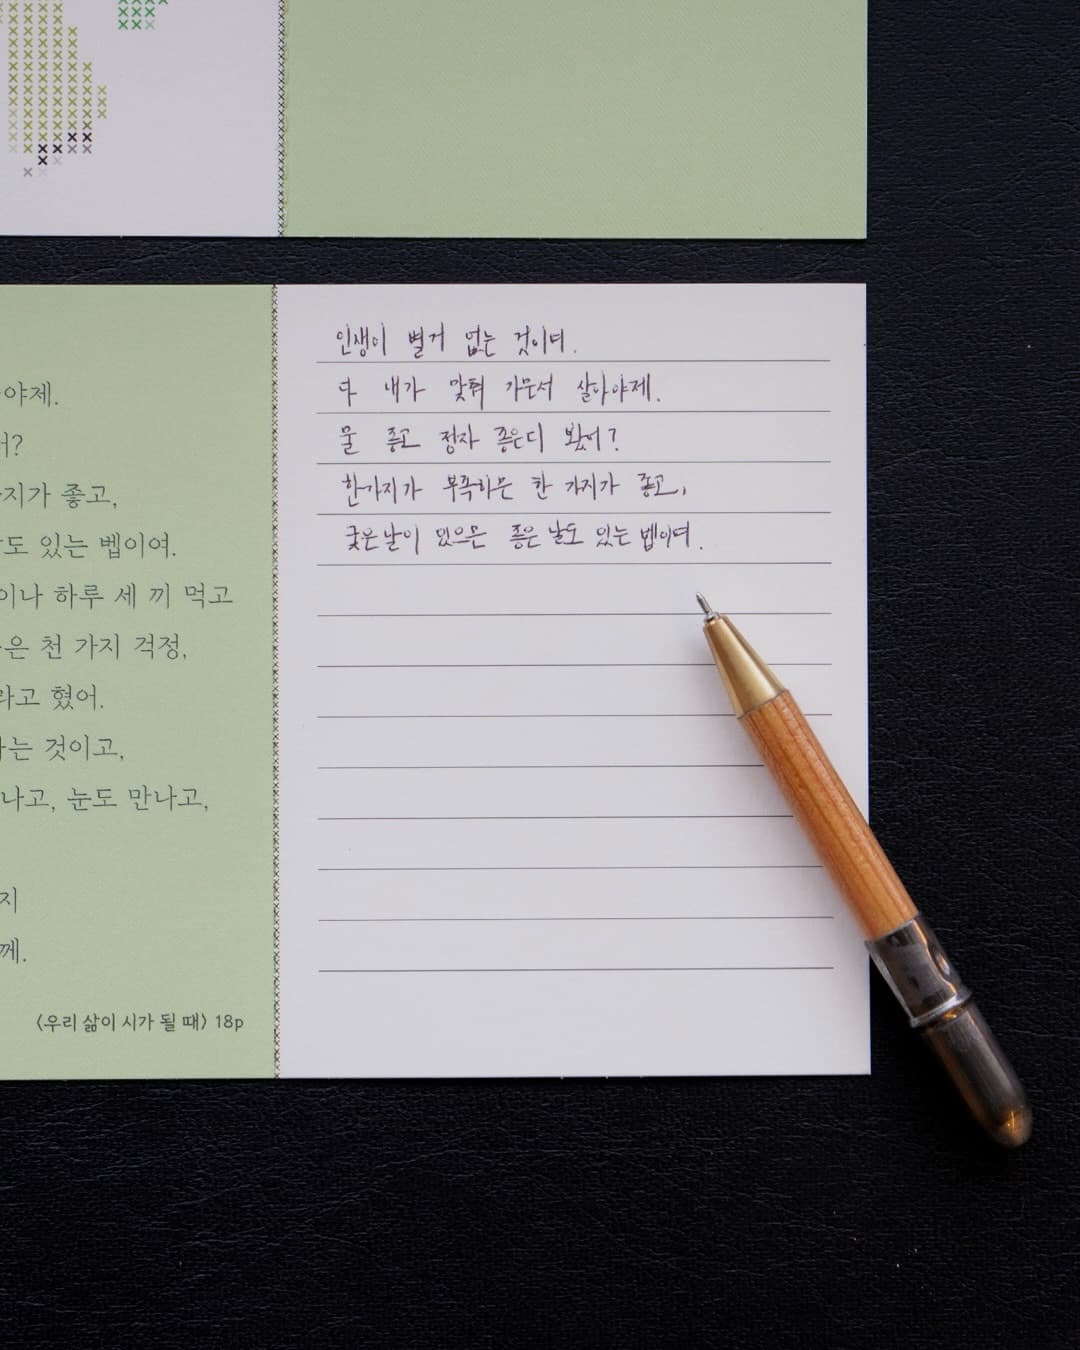 야제.
어?
지가 좋고,
도 있는 벱이여.
이나 하루 세 끼 먹고
은 천 가지 걱정,
라고 혔어.
는 것이고,
나고, 눈도 만나고,
지
께.
〈우리 삶이 시가 될 때〉 18p
인생이 별거 없는 것이여.
다 내가 맞춰 가믄서 살아야제.
물 좋고 정자 좋은디 봤어?
한가지가 부족하믄 한 가지가 좋고,
궂은날이 있으믄 좋은 날도 있는 벱이여.